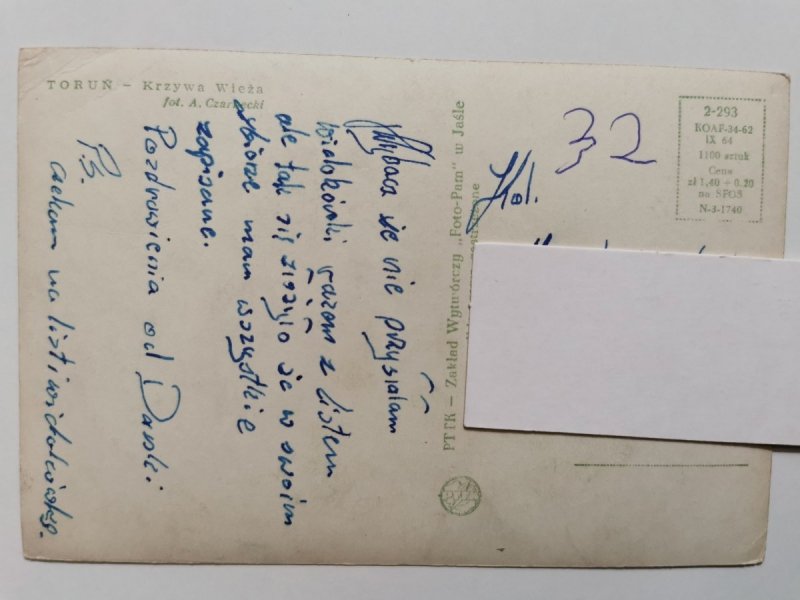 TORUŃ — Krzywa Wieża
fot. A. Czarnecki
Wybacz że nie przysłałam
widokówki razem z listem
ale tak się złożyło że w swoim
zbiorze mam wszystkie
zapisane.
Pozdrowienia od Danki
P.S.
czekam na list i widokówkę.
PTTK — Zakład Wytwórczy „Foto-Pam" w Jaśle
32
Kol.
2-293
KOAF-34-62
IX 64
1100 sztuk
Cena
zł 1,40 + 0.20
na SFOS
N-3-1740